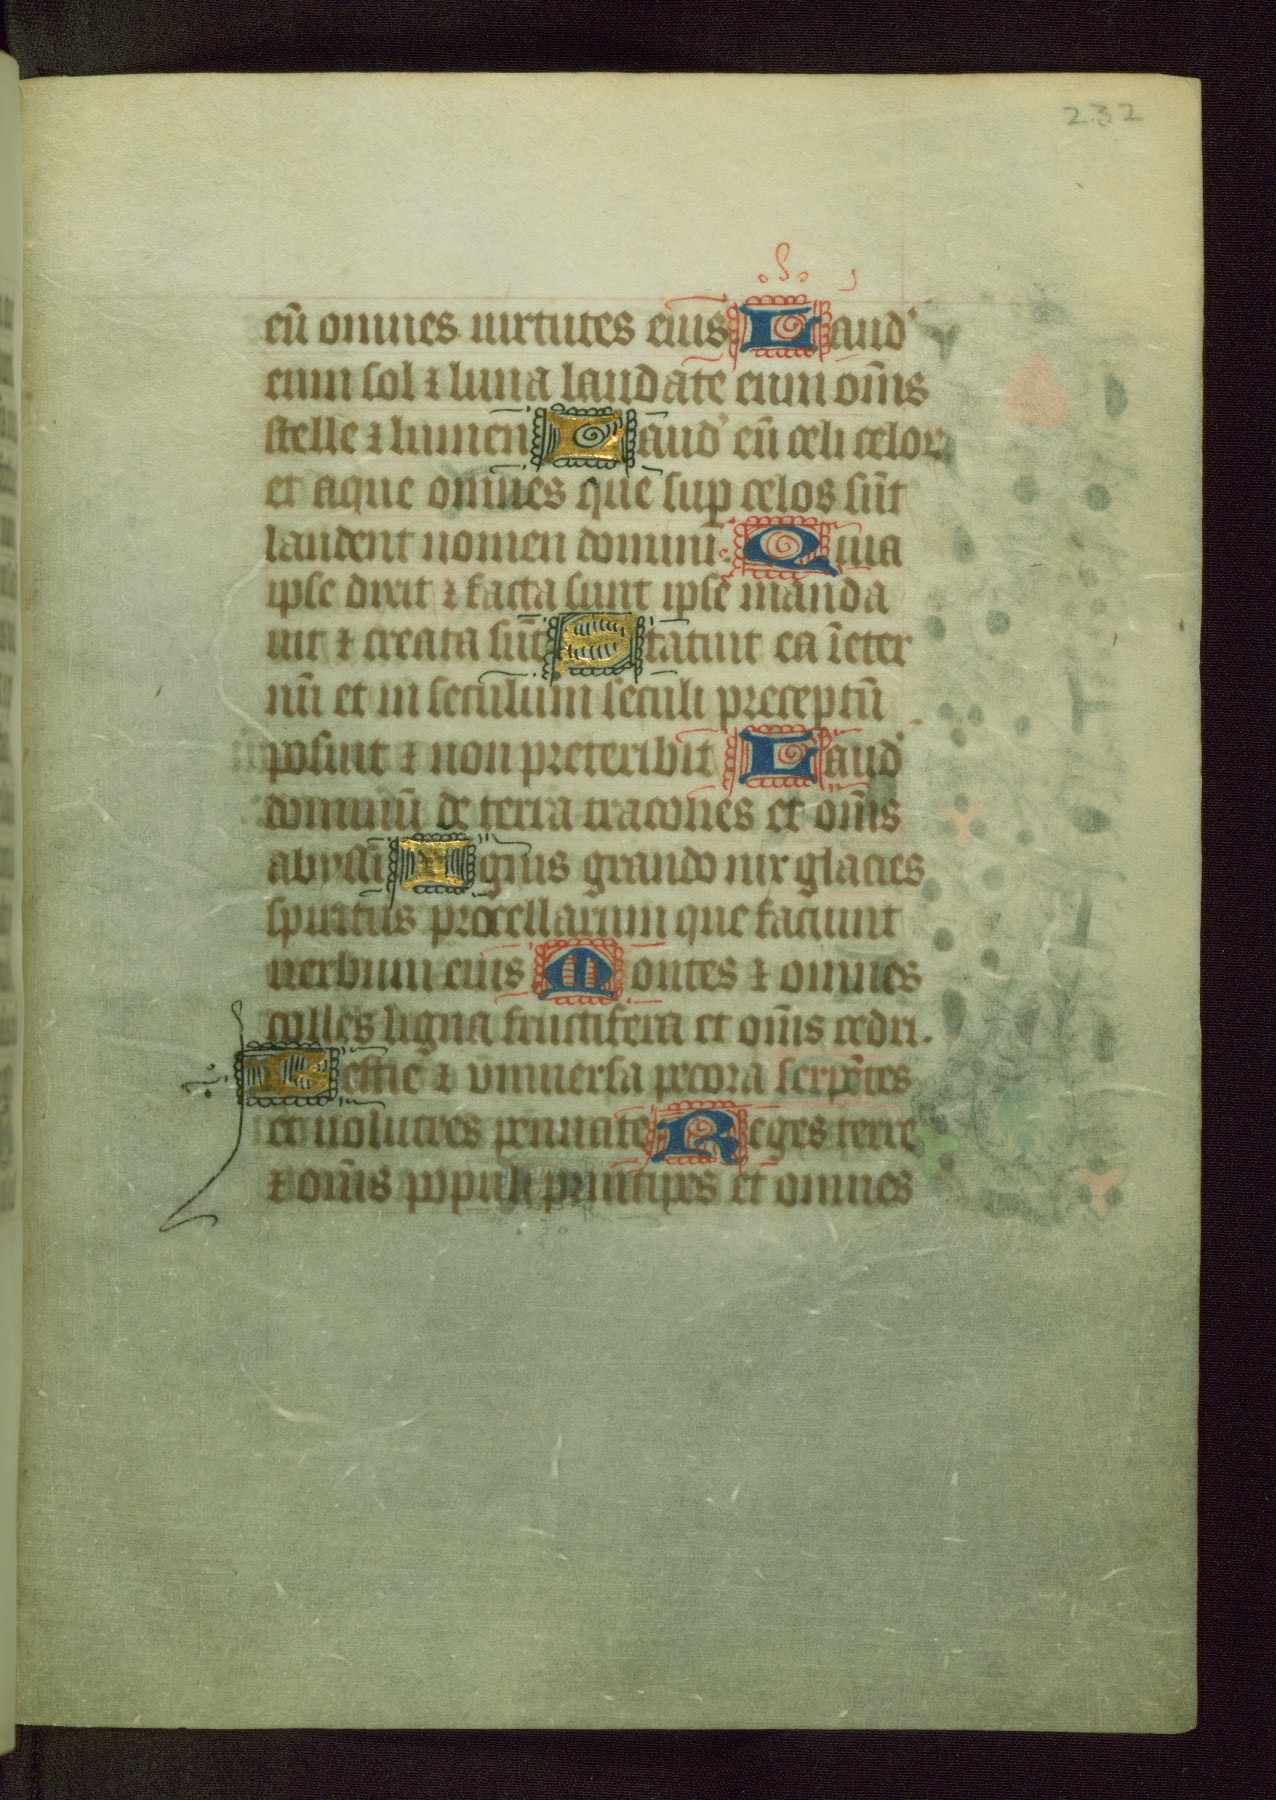 232
eū omnes uirtutes eius Laud'
eum sol ⁊ luna laudate eum om̄s
stelle ⁊ lumen Laud' eū celi celoꝝ
et aque omnes que suꝑ celos sūt
laudent nomen domini. Quia
ipse dixit ⁊ facta sunt ipse manda
uit ⁊ creata sūt Statuit ea īeter
nū et in seculum seculi preceptū
posuit ⁊ non preteribit Laud'
dominū de terra dracones et om̄s
abyssi Ignis grando nix glacies
spiritus procellarum que faciunt
uerbum eius Montes ⁊ omnes
colles ligna fructifera et om̄s cedri.
Bestie ⁊ vniuersa pecora serpētes
et uolucres pennate Reges terre
⁊ om̄s populi principes et omnes